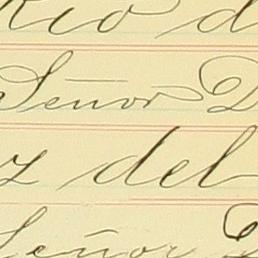 Rio d
Señor D
z del
Señor D